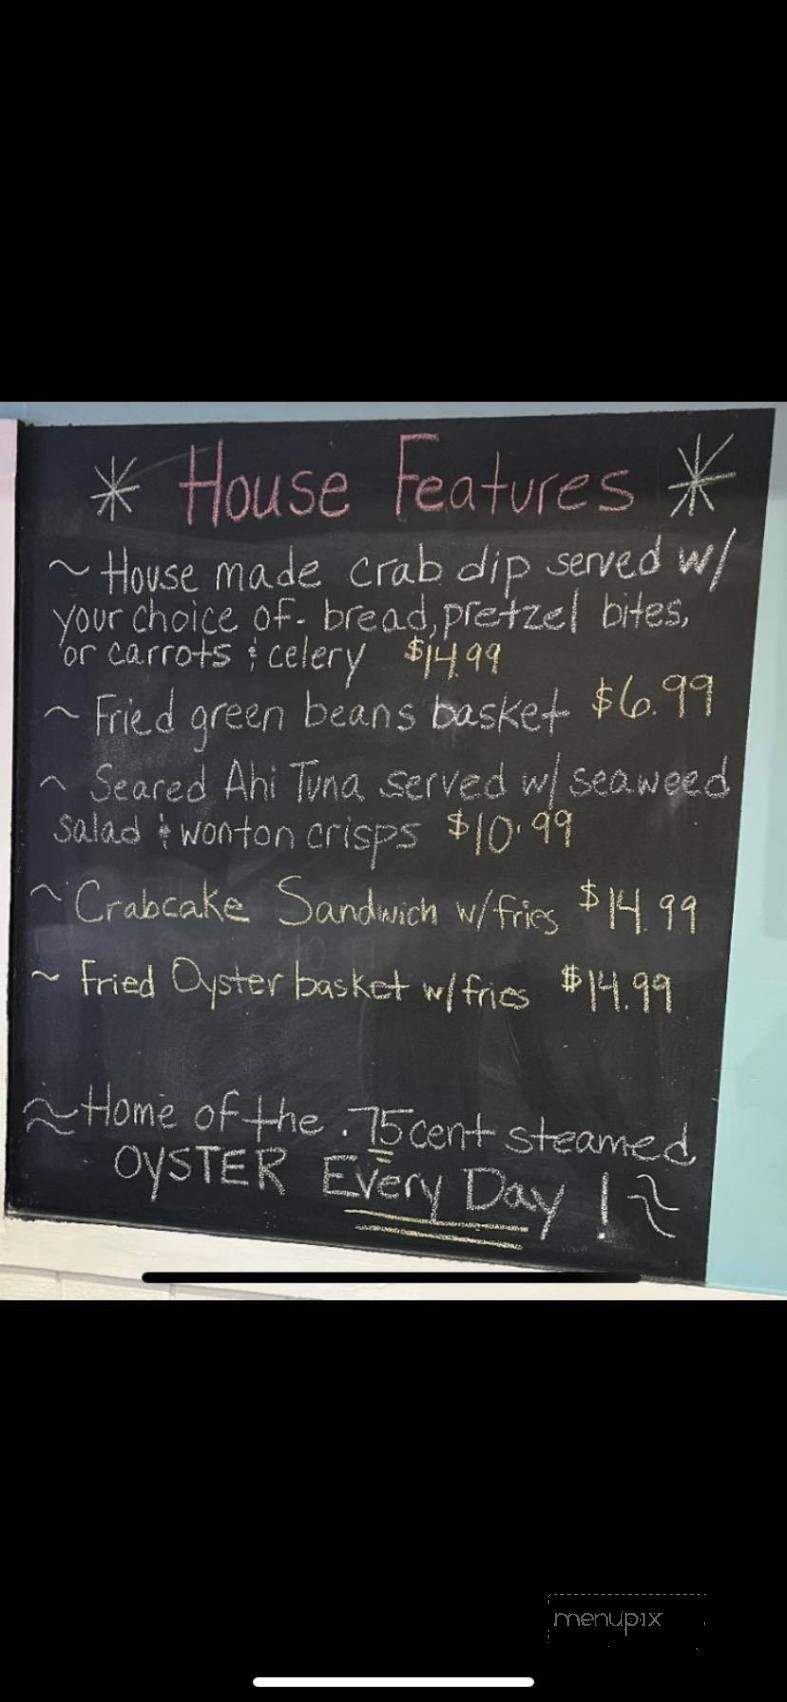 * House Features *
~ House made crab dip served w/
your choice of - bread, pretzel bites,
or carrots & celery $14.99
~ Fried green beans basket $6.99
~ Seared Ahi Tuna served w/ seaweed
salad & wonton crisps $10.99
~ Crabcake Sandwich w/fries $14.99
~ Fried Oyster basket w/fries $14.99
≈ Home of the .75 cent steamed
OYSTER Every Day ! ≈
menupix